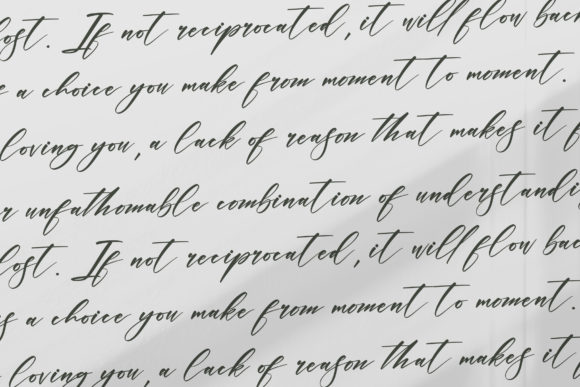 lost. If not reciprocated, it will flow back
a choice you make from moment to moment.
loving you, a lack of reason that makes it
unfathomable combination of understandi
lost. If not reciprocated, it will flow bac
is a choice you make from moment to moment.
loving you, a lack of reason that makes it